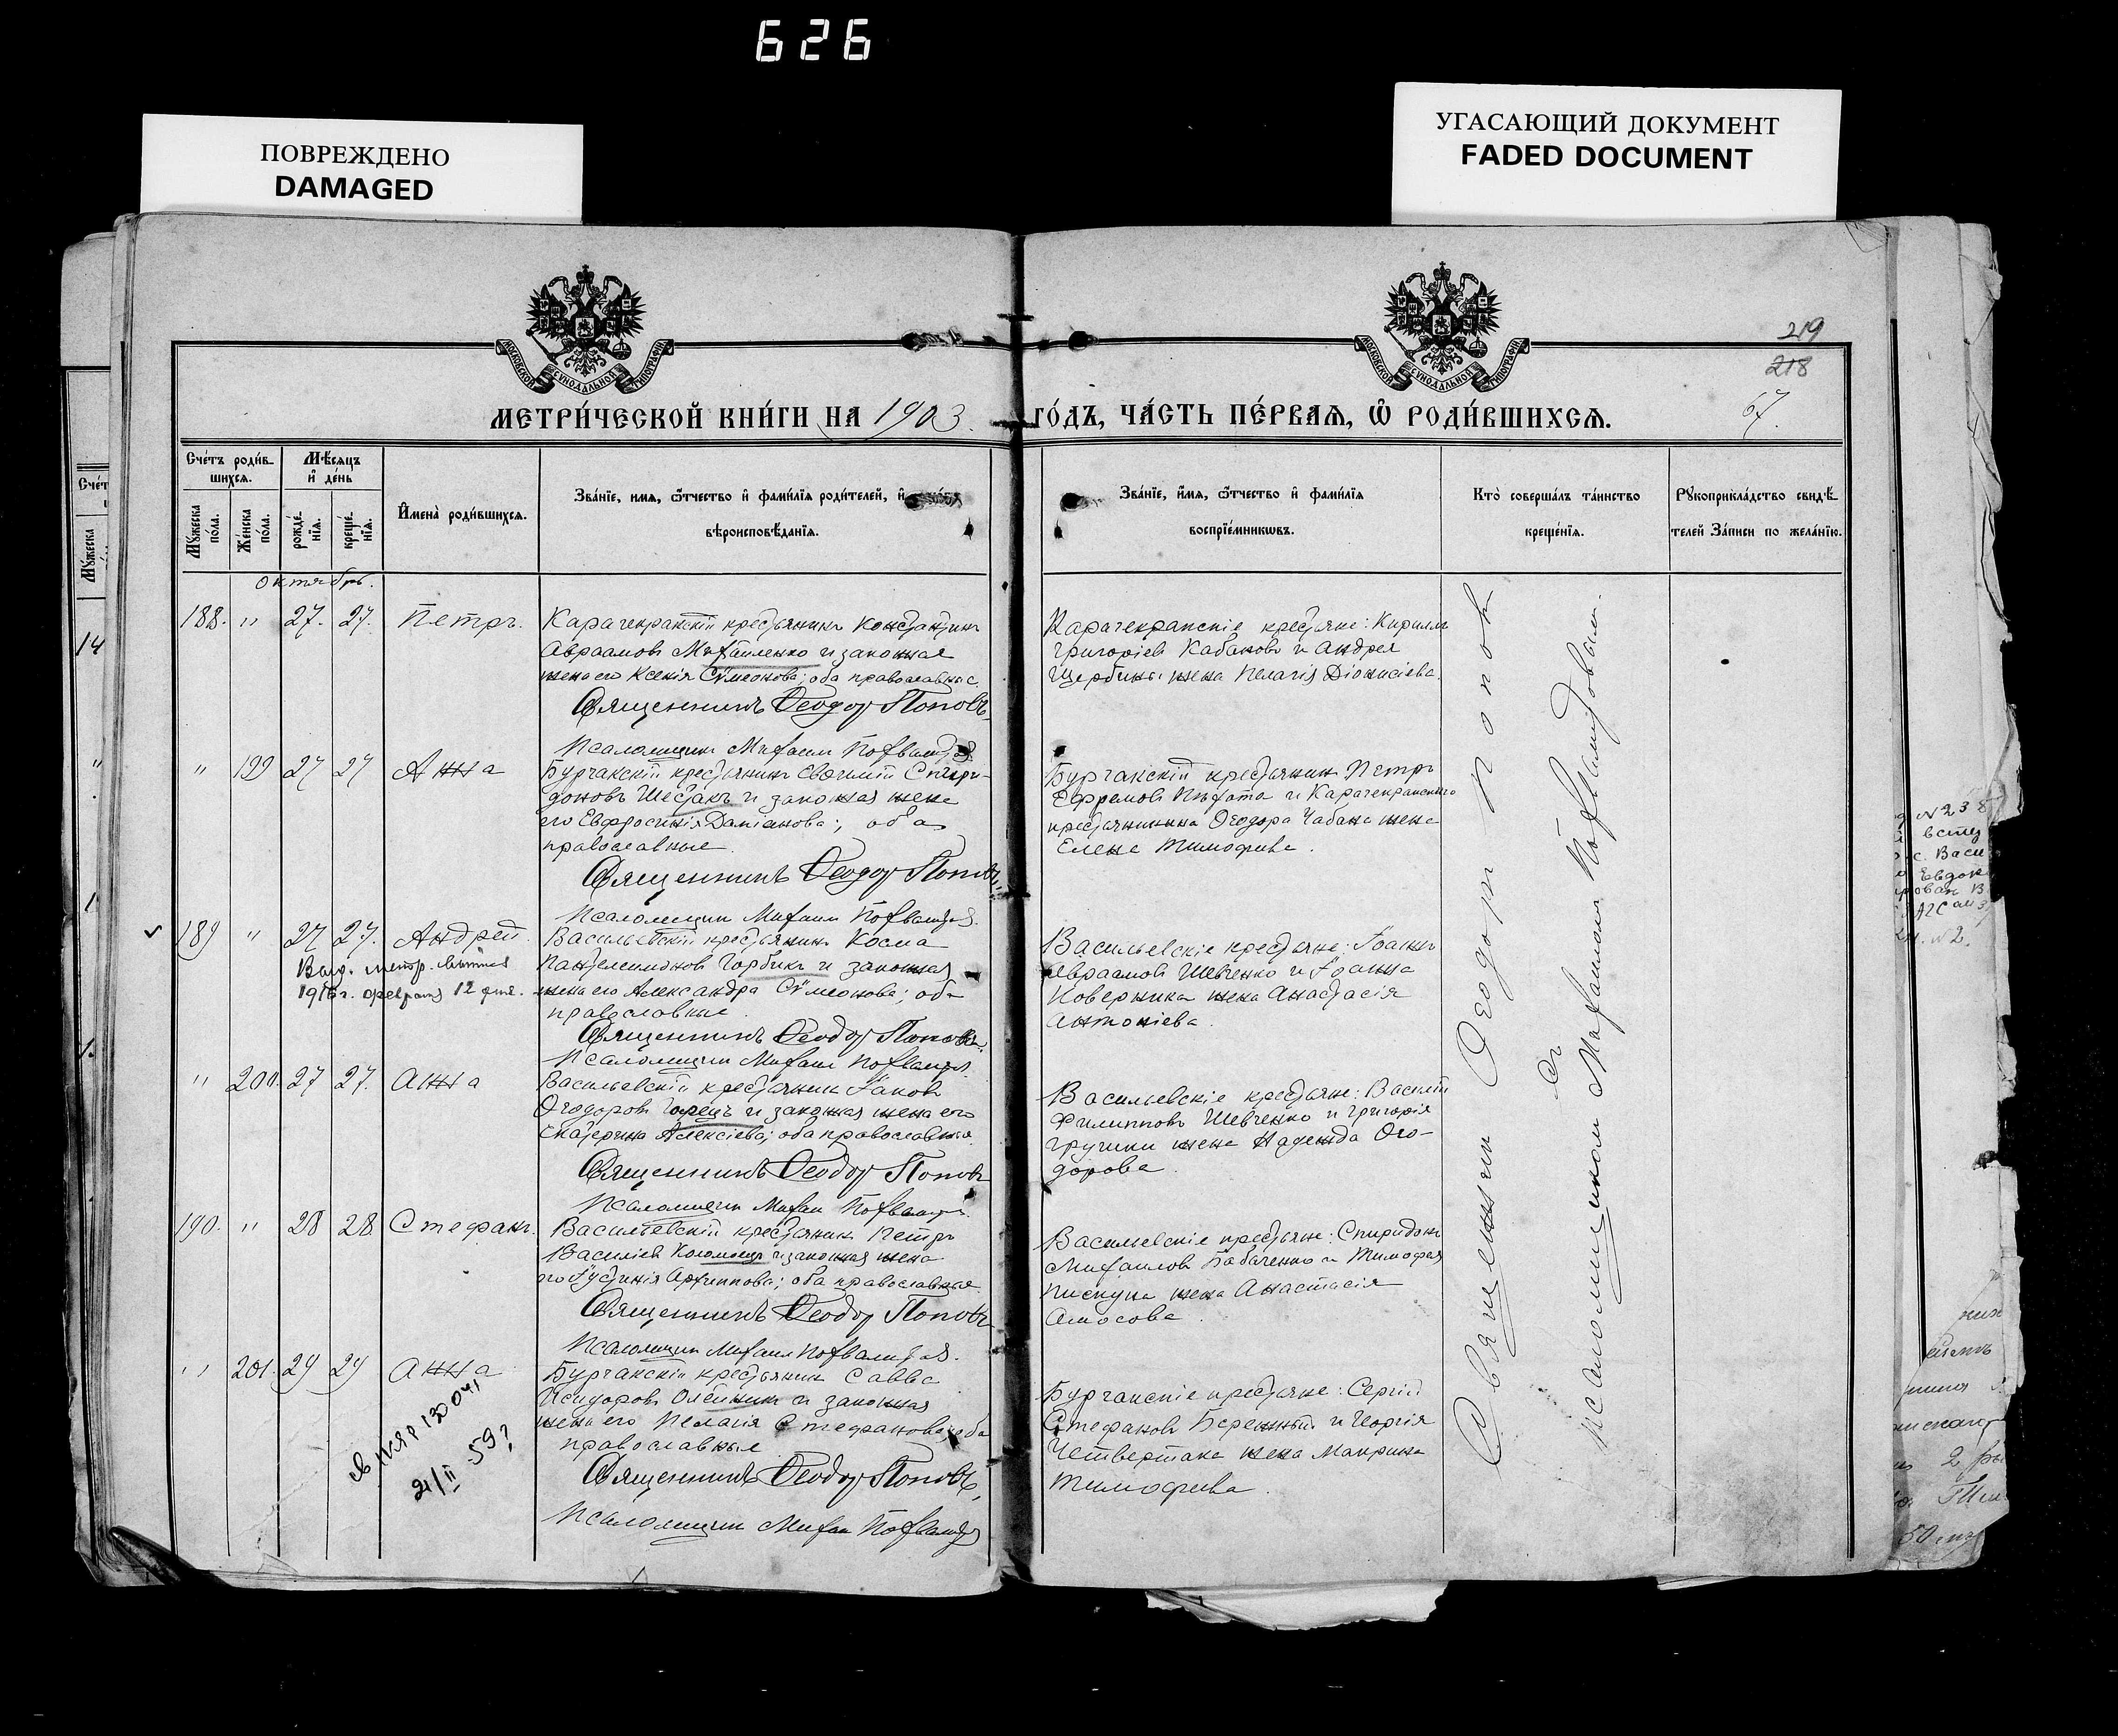 626
ПОВРЕЖДЕНО
DAMAGED
УГАСАЮЩИЙ ДОКУМЕНТ
FADED DOCUMENT
МОСКОВСКОЙ СѴНОДАЛЬНОЙ ТИПОГРАФІИ
МОСКОВСКОЙ СѴНОДАЛЬНОЙ ТИПОГРАФІИ
219
218
67.
МЕТРИ́ЧЕСКОЙ КНИ́ГИ НА 1903.
ГО́ДЪ, ЧА́СТЬ ПЕ́РВАЯ, Ѡ РОДИ́ВШИХСЯ.
Сче́тъ роди́вшихся.
Мѣ́сяцъ и де́нь
Мꙋжеска по́ла.
Же́нска по́ла.
рожде́нїя.
креще́нїя.
Имена̀ роди́вшихся.
Зва́нїе, имя, ѻ҆́тчество и҆ фами́лїя роди́телей, и҆
вѣроисповѣ́данїя.
Зва́нїе, и҆́мя, ѻ҆́тчество и҆ фами́лїя
воспрїе́мниковъ.
Кто̀ соверша́лъ та́инство
креще́нїя.
Рꙋкоприкла́дство свидѣ́-
телей За́писи по жела́нїю.
октябрь.
188. " 27. 27. Петръ.
Карачекракскій крестьянинъ Константинъ
Авраамовъ Михайленко и законная
жена его Ксенія Сѵмеонова; оба православные.
Священникъ Ѳеодоръ Поповъ.
Псаломщикъ Михаилъ
Карачекракскіе крестьяне: Кириллъ
Григоріевъ Кабановъ и Андрея
Щербины жена Пелагія Діонисіева.
" 199 27 27 Анна
Бурчакскій крестьянинъ Евѳимій Спири-
доновъ Шестакъ и законная жена
его Евфросинія Даміанова; оба
православные.
Священникъ Ѳеодоръ Поповъ.
Псаломщикъ Михаилъ
Бурчакскій крестьянинъ Петръ
Ефремовъ и Карачекракскаго
крестьянина Ѳеодора Чабана жена
Елена Тимофеева.
189 " 27 27. Андрей.
Выд. метр. выпись
1916 г. февраля 12 дня.
Васильевскій крестьянинъ Косма
Пантелеимоновъ Горбикъ и законная
жена его Александра Сѵмеонова; оба
православные.
Священникъ Ѳеодоръ Поповъ.
Псаломщикъ Михаилъ
Васильевскіе крестьяне: Іоаннъ
Авраамовъ Шевченко и Іоанна
жена Анастасія
Антоніева.
" 200. 27 27. Анна
Васильевскій крестьянинъ Іаковъ
Ѳеодоровъ Горецъ и законная жена его
Екатерина Алексіева; оба православные.
Священникъ Ѳеодоръ Поповъ
Псаломщикъ Михаилъ
Васильевскіе крестьяне: Василій
Филипповъ Шевченко и Григорія
жена Надежда Ѳео-
дорова.
190. " 28 28. Стефанъ.
Васильевскій крестьянинъ Петръ
Василіевъ Коломоецъ и законная жена
его Іустинія Архиппова; оба православные.
Священникъ Ѳеодоръ Поповъ
Псаломщикъ Михаилъ
Васильевскіе крестьяне: Спиридонъ
Михаиловъ Бабаченко и Тимофея
Пискуна жена Анастасія
Амосова.
" 201. 29 29 Анна
Бурчакскій крестьянинъ Савва
Исидоровъ Олейникъ и законная
жена его Пелагія Стефанова; оба
православные.
Священникъ Ѳеодоръ Поповъ.
Псаломщикъ Михаилъ
Бурчакскіе крестьяне: Сергій
Стефановъ Бережный и Георгія
Четвертака жена Макрина
Тимофеева.
21/II 59 г
Священникъ Ѳеодоръ Поповъ
съ
псаломщикомъ Михаиломъ
14
N 238